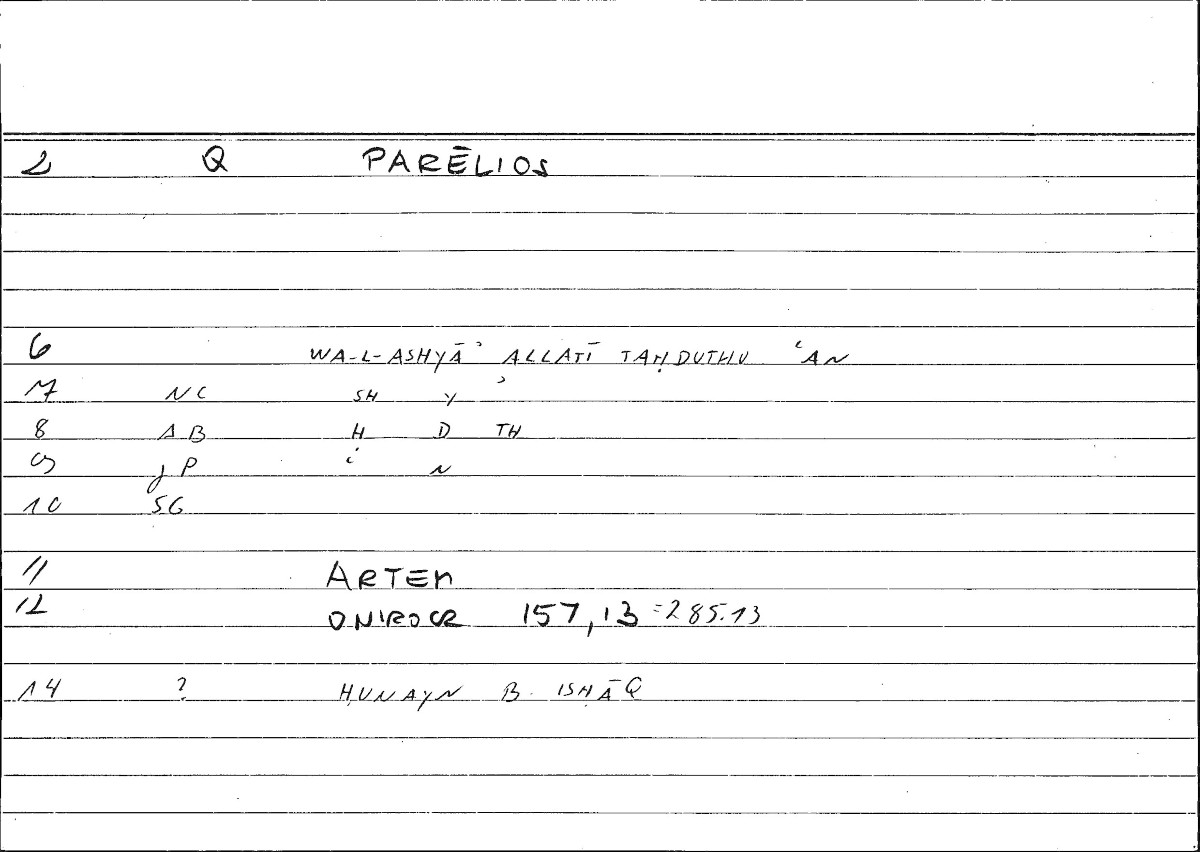 2 Q PARĒLIOS
6 WA-L-ASHYĀʾ ALLATĪ TAḤDUTHU ʿAN
7 NC SH Y ʾ
8 AB Ḥ D TH
9 JP ʿ N
10 SG
11 ARTEM
12 ONIROCR 157,13 =285.13
14 ? ḤUNAYN B. ISḤĀQ